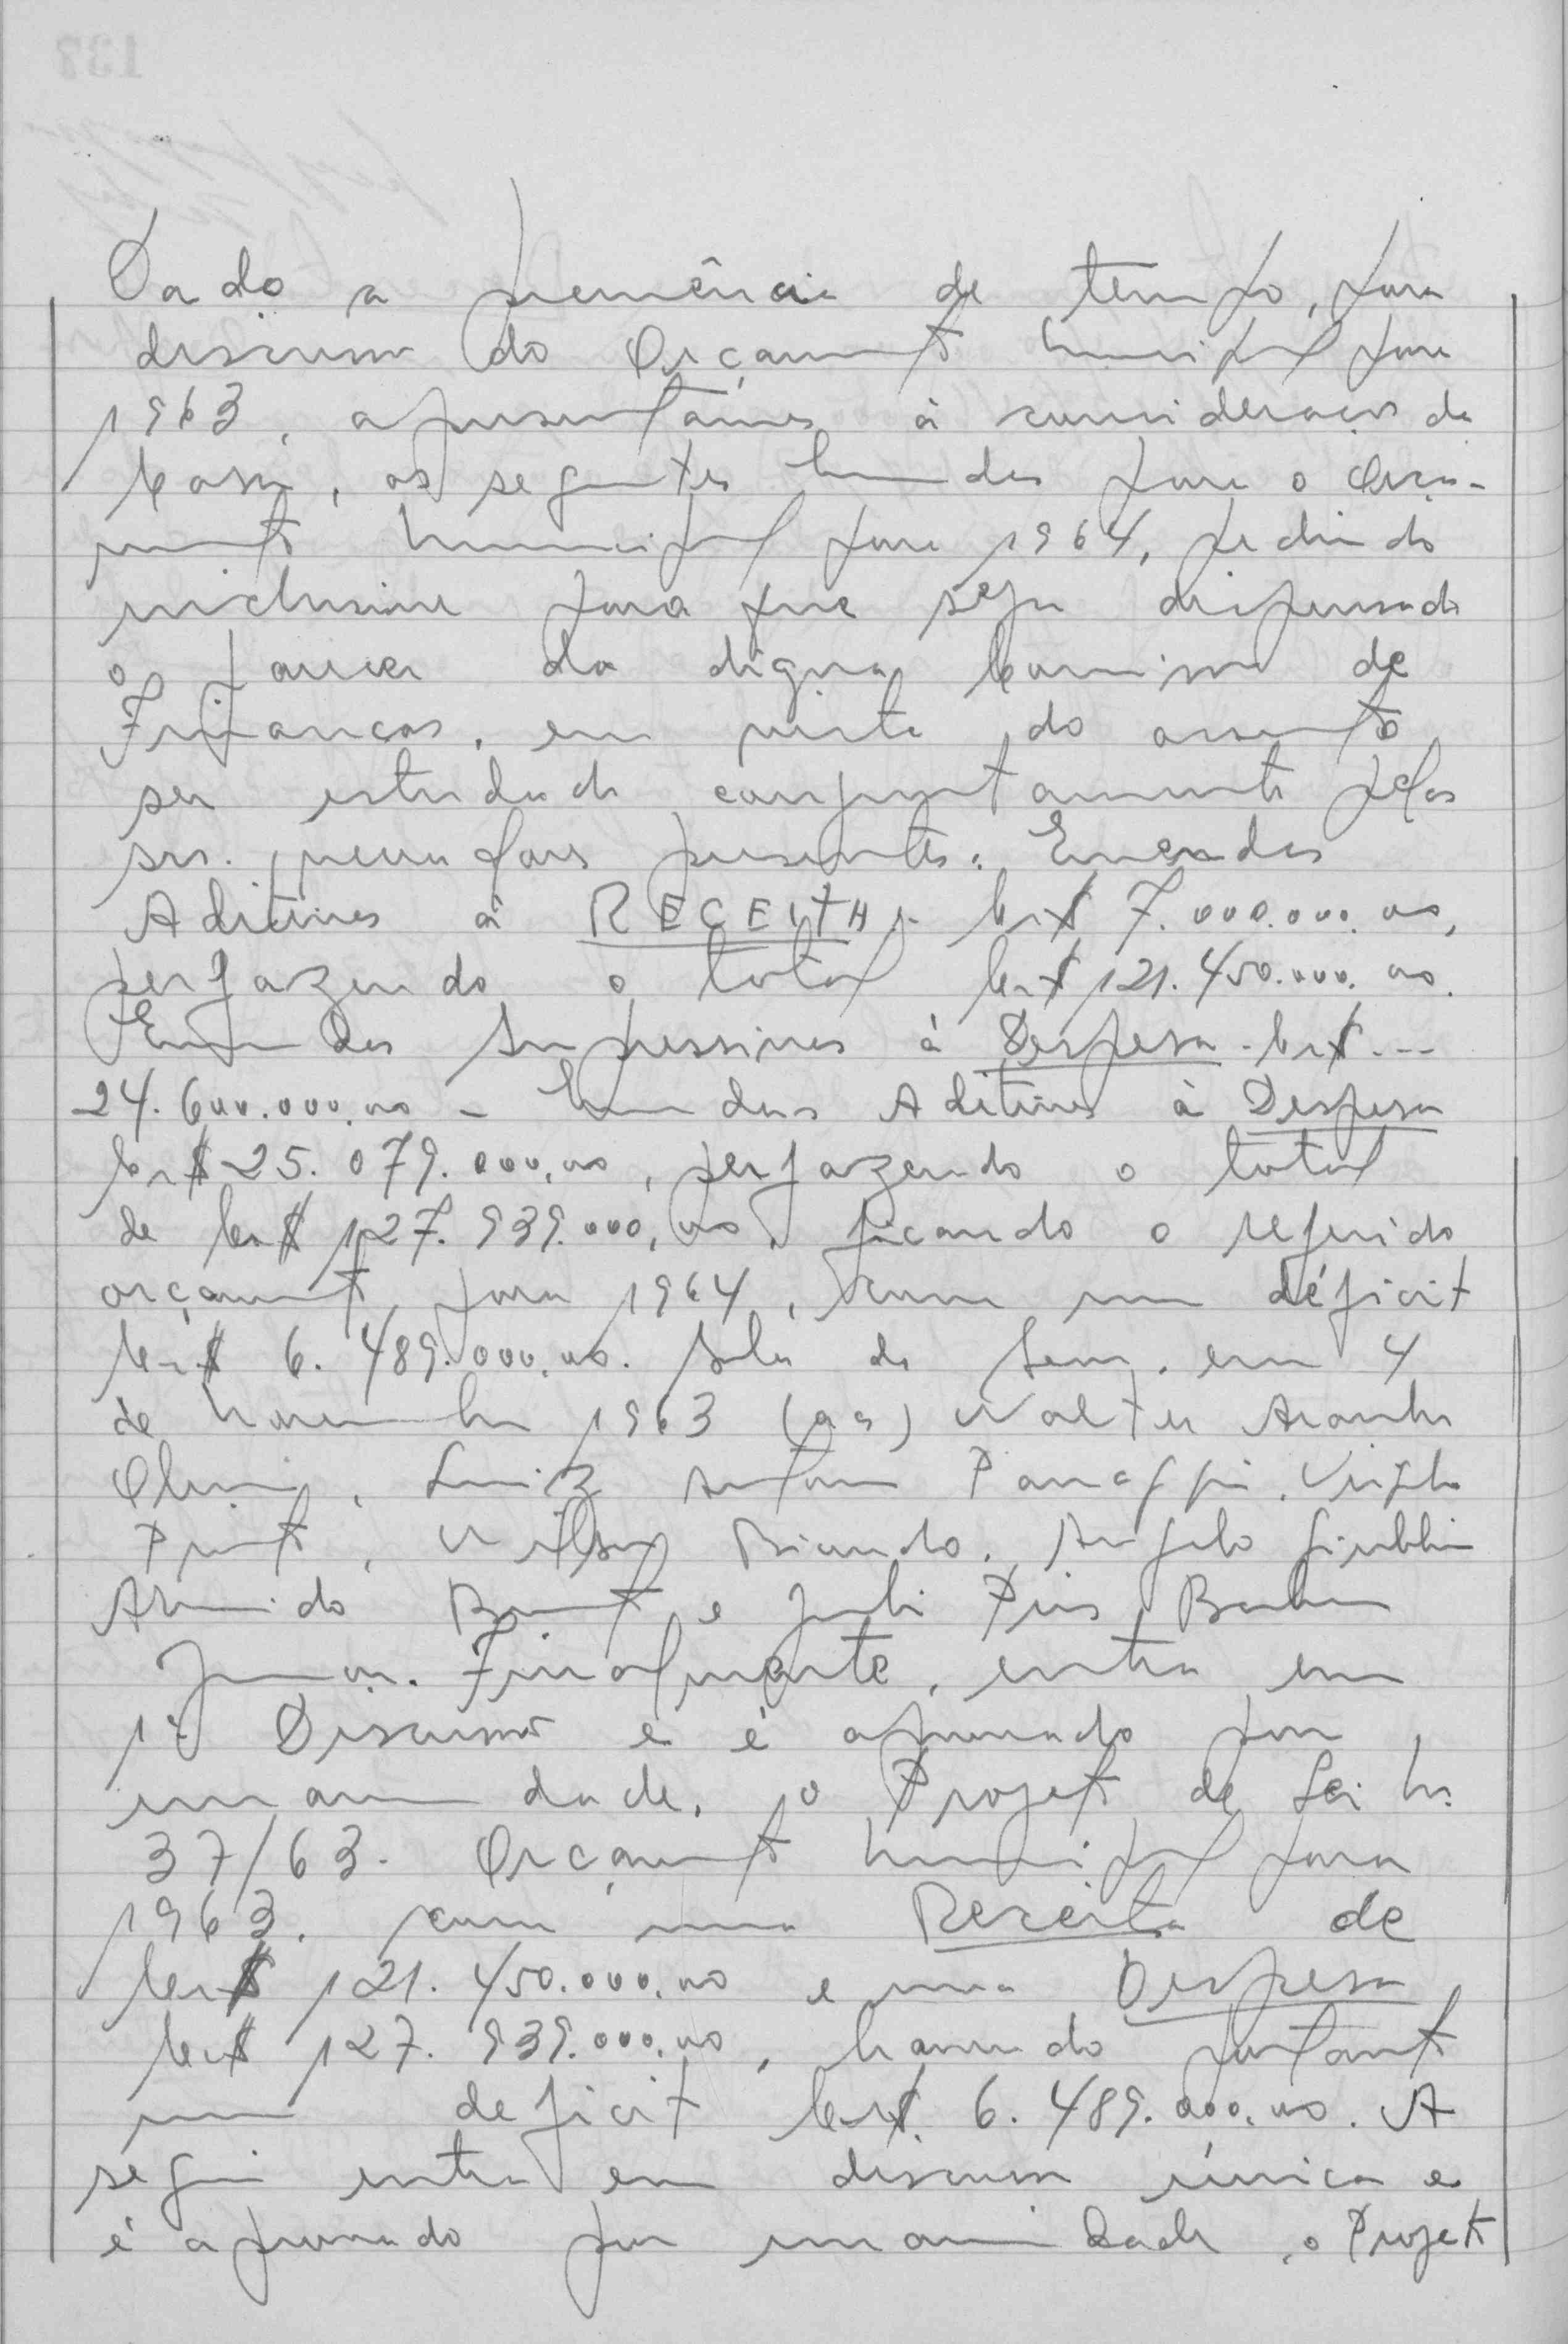 Dado a premência de tempo, para
discussão do Orçamento Municipal para
1963, apresentamos à consideração da
Casa, as seguintes Emendas para o Orça-
mento Municipal para 1964, pedindo
inclusive para que seja dispensado
o parecer da digna Comissão de
Finanças, em vista do assunto
ser estudado conjuntamente pelos
srs. vereadores presentes: Emendas
Aditivas à RECEITA - Cr$ 7.000.000,00,
perfazendo o total Cr$ 121.450.000,00.
Emendas Supressivas à Despesa - Cr$ ---
24.600.000,00 - Emendas Aditivas à Despesa
Cr$ 25.079.000,00, perfazendo o total
de Cr$ 127.939.000,00, ficando o referido
orçamento para 1964, com um déficit
Cr$ 6.489.000,00. Sala de Sess. em 4
de Novembro 1963 (aa) Walter Aranha
Oliveira, Luiz Antonio Virgilio
Pinto, Wilson Angelo
Armindo e Julio Pires Barbosa
Junior. Finalmente, entra em
1ª Discussão e é aprovado por
unanimidade, o Projeto de Lei Nº
37/63. Orçamento Municipal para
1963, com uma Receita de
Cr$ 121.450.000,00 e uma Despesa
Cr$ 127.939.000,00, havendo portanto
um deficit Cr$. 6.489.000,00. A
seguir entra em discussão única e
é aprovado por unanimidade, o Projeto